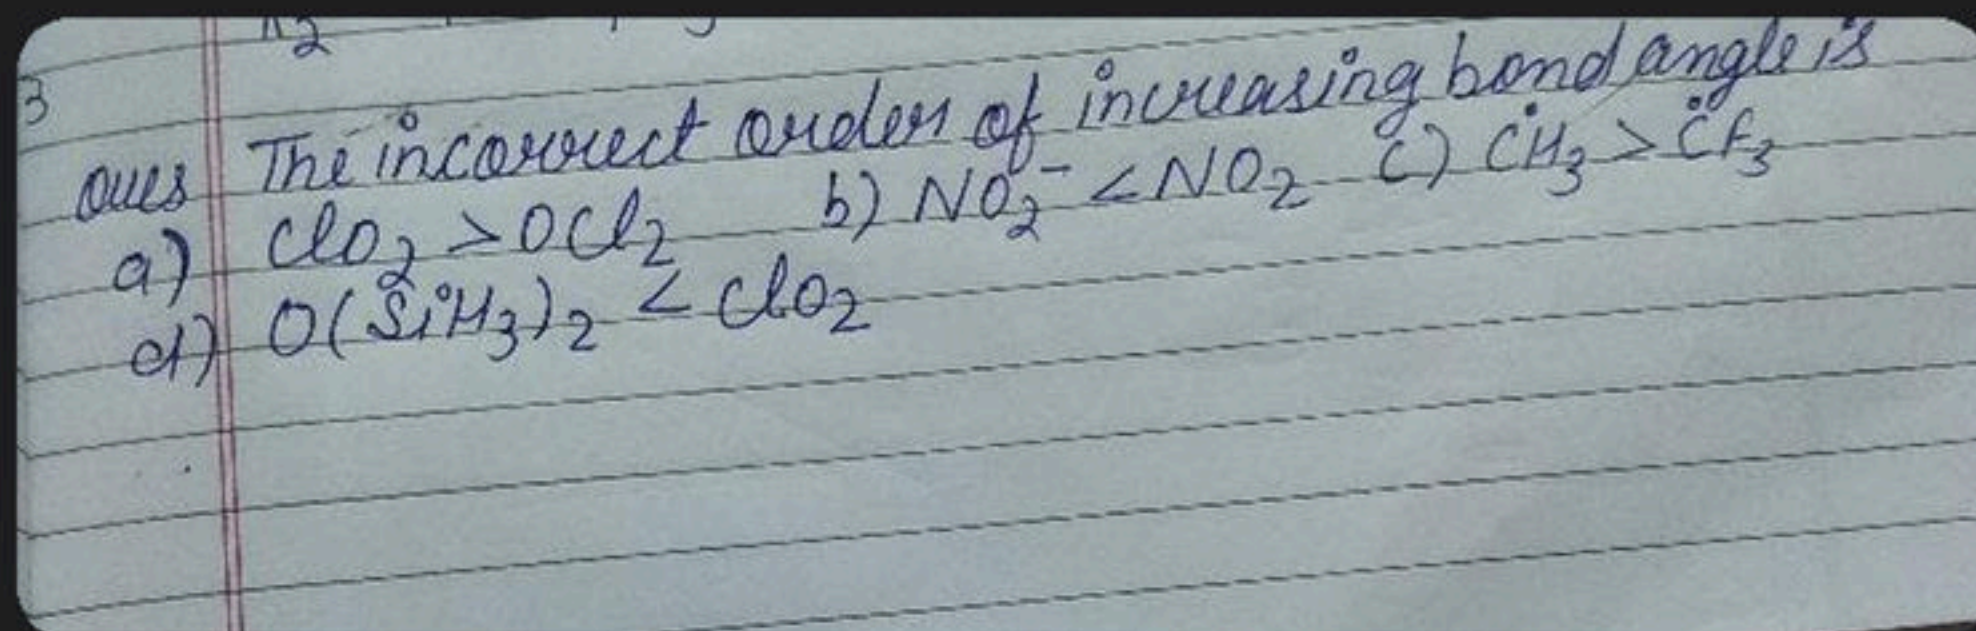 3
Ques The incorrect order of increasing bond angle is
a) ClO₂ > OCl₂ b) NO₂⁻ < NO₂ c) ĊH₃ > ĊF₃
d) O(SiH₃)₂ < ClO₂